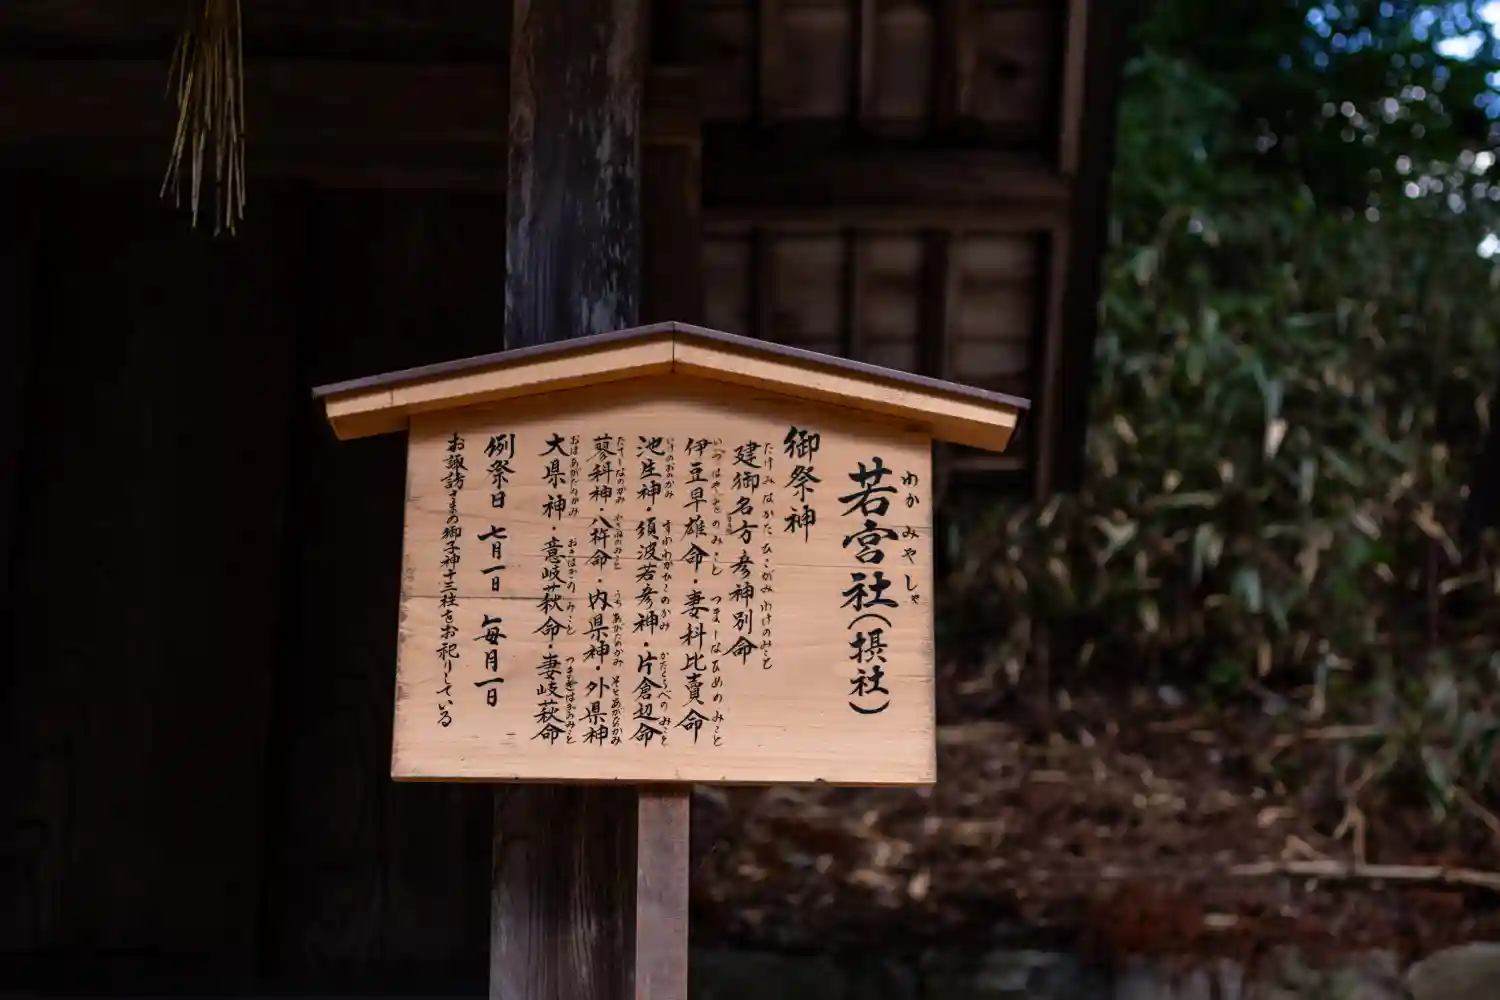 若宮社(摂社)
わかみやしゃ
御祭神
建御名方彦神別命
たけみなかたひこがみわけのみこと
伊豆早雄命・妻科比賣命
いづはやおのみこと つましなひめのみこと
池生神・須波若彦神・片倉辺命
いけのおのかみ すわわかひこのかみ かたくらべのみこと
蓼科神・八杵命・内県神・外県神
たてしなのかみ やきねのみこと うちあがたのかみ そとあがたのかみ
大県神・意岐萩命・妻岐萩命
おおあがたのかみ おきはぎのみこと つまきはぎのみこと
例祭日 七月一日 毎月一日
お諏訪さまの御子神十三柱をお祀りしている